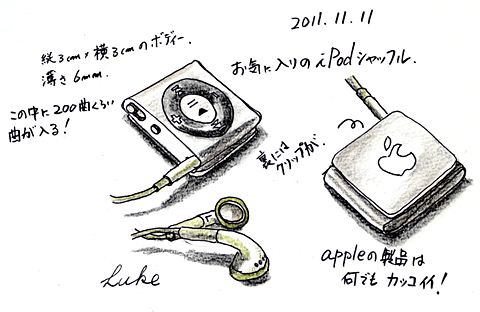 2011.11.11
縦3cm×横3cmのボディー.
薄さ6mm.
お気に入りのiPodシャッフル.
この中に200曲くらい
曲が入る!
裏には
クリップが.
appleの製品は
何でもカッコイイ!
Luke